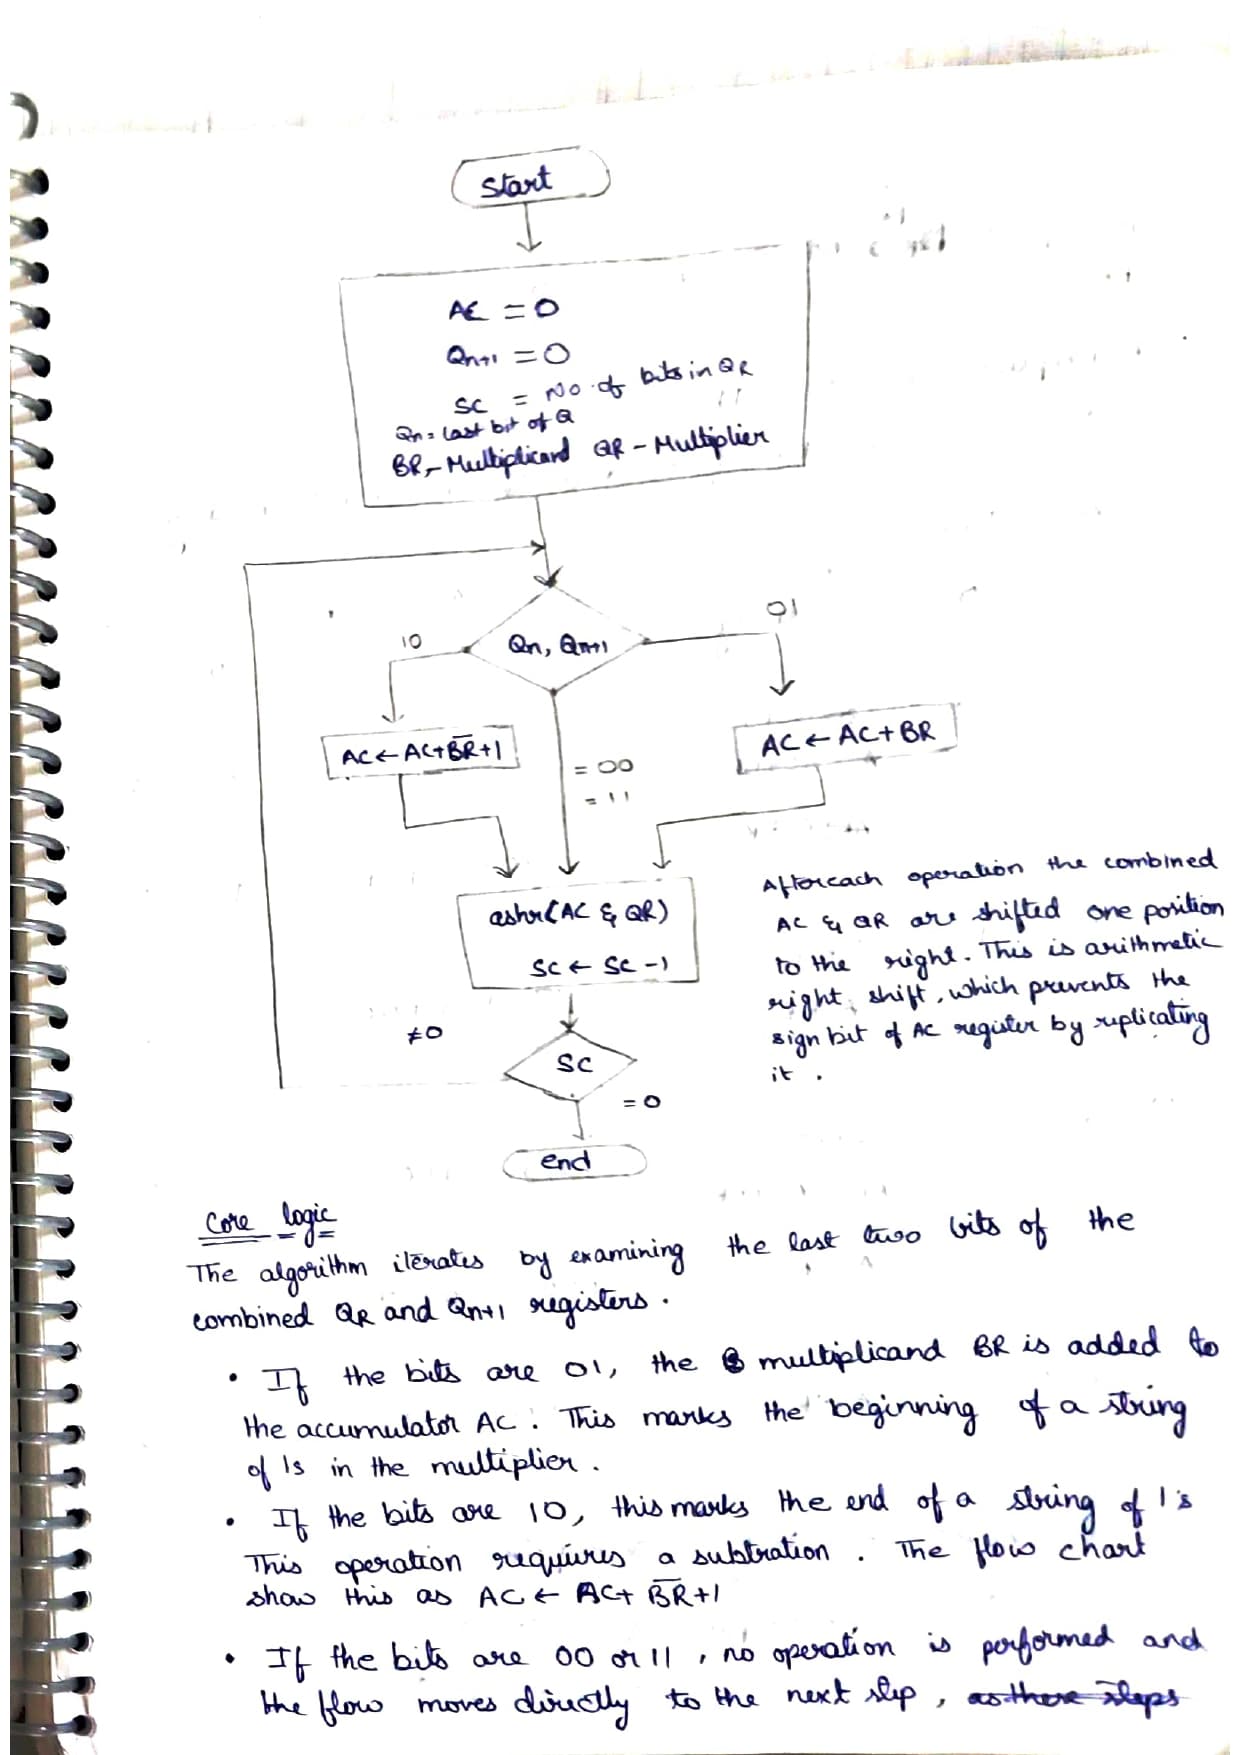 Start
AC = 0
Qn+1 = 0
SC = No of bits in QR
Qn = Last bit of Q
BR - Multiplicand QR - Multiplier
10
Qn, Qn+1
01
AC ← AC+B̅R̅+1
= 00
= 11
AC ← AC+BR
ashr(AC & QR)
SC ← SC -1
≠0
SC
= 0
end
After each operation the combined
AC & QR are shifted one position
to the right. This is arithmetic
right shift, which prevents the
sign bit of AC register by replicating
it .
Core logic
The algorithm iterates by examining the last two bits of the
combined QR and Qn+1 registers.
• If the bits are 01, the multiplicand BR is added to
the accumulator AC. This marks the beginning of a string
of 1s in the multiplier.
• If the bits are 10, this marks the end of a string of 1's
This operation requires a subtration. The flow chart
show this as AC ← AC+ B̅R̅+1
• If the bits are 00 or 11, no operation is performed and
the flow moves directly to the next step, as there steps